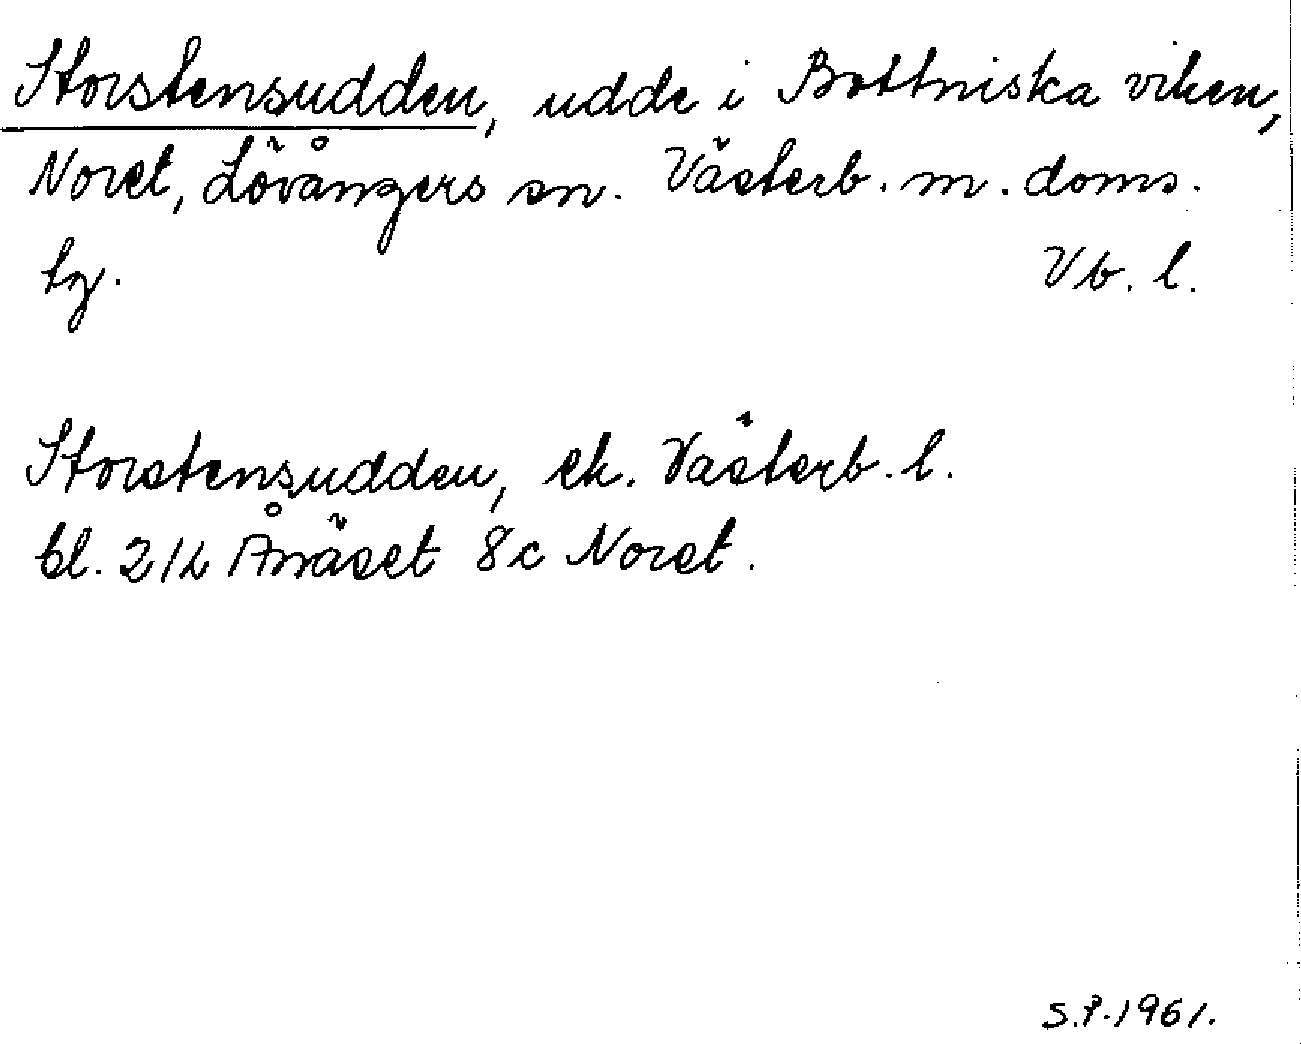 Storstensudden, udde i Bottniska viken,
Noret, Lövångers sn. Västerb. m. doms.
tg. Vb. l.
Storstensudden, ek. Västerb. l.
bl. 21L Ånäset 8c Noret.
S.P. 1961.